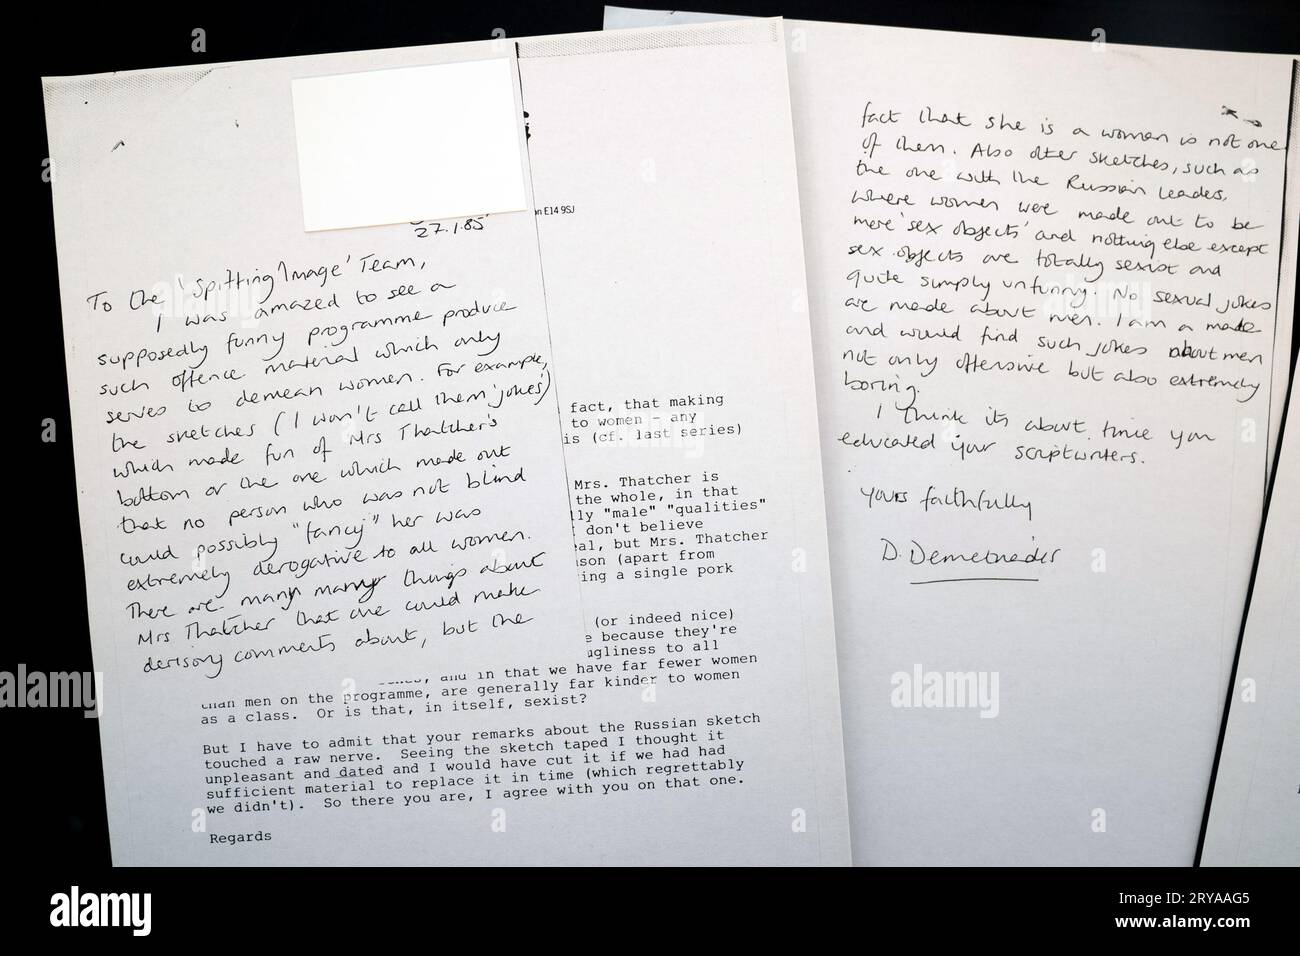 27.1.85
To the 'Spitting Image' Team,
I was amazed to see a
supposedly funny programme produce
such offence material which only
serves to demean women. For example,
the sketches (I won't call them 'jokes')
which made fun of Mrs Thatcher's
bottom or the one which made out
that no person who was not blind
could possibly "fancy" her was
extremely derogative to all women.
There are many many things about
Mrs Thatcher that one could make
derisory comments about, but the
on E14 9SJ
fact, that making
to women - any
is (cf. last series)
Mrs. Thatcher is
the whole, in that
lly "male" "qualities"
don't believe
eal, but Mrs. Thatcher
son (apart from
ing a single pork
(or indeed nice)
e because they're
ugliness to all
, and in that we have far fewer women
than men on the programme, are generally far kinder to women
as a class. Or is that, in itself, sexist?
But I have to admit that your remarks about the Russian sketch
touched a raw nerve. Seeing the sketch taped I thought it
unpleasant and dated and I would have cut it if we had had
sufficient material to replace it in time (which regrettably
we didn't). So there you are, I agree with you on that one.
Regards
fact that she is a woman is not one
of them. Also other sketches, such as
the one with the Russian leaders,
where women were made out to be
mere 'sex objects' and nothing else except
sex objects are totally sexist and
quite simply unfunny. No sexual jokes
are made about men. I am a male
and would find such jokes about men
not only offensive but also extremely
boring.
I think its about time you
educated your scriptwriters.
Yours faithfully
D. Demetriades
alamy
Image ID: 2RYAAG5
www.alamy.com